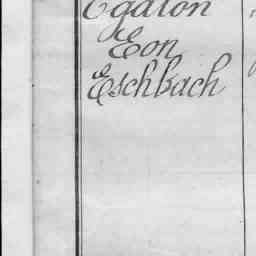 Egalon
Eon
Eschbach